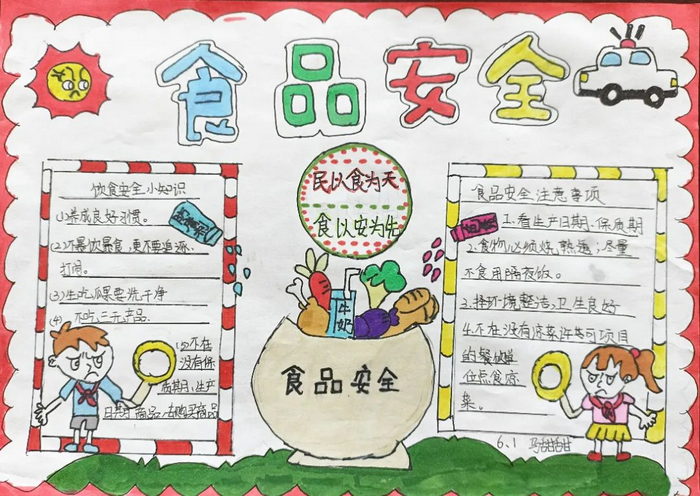 食品安全
饮食安全小知识
(1)养成良好习惯。
(2)不暴饮暴食,更不要追逐
打闹。
(3)生吃瓜果要洗干净
(4) 不吃三无产品.
(5)不在
没有保
质期,生产
日期 商品
民以食为天
食以安为先
牛
奶
食品安全
食品安全注意事项
1.看生产日期.保质期
2.食物必须烧,熟透;尽量
不食用隔夜饭。
3.择环境整洁,卫生良好
4.不在没有凉菜许可项目
的餐饮
位点食凉
菜。
6.1